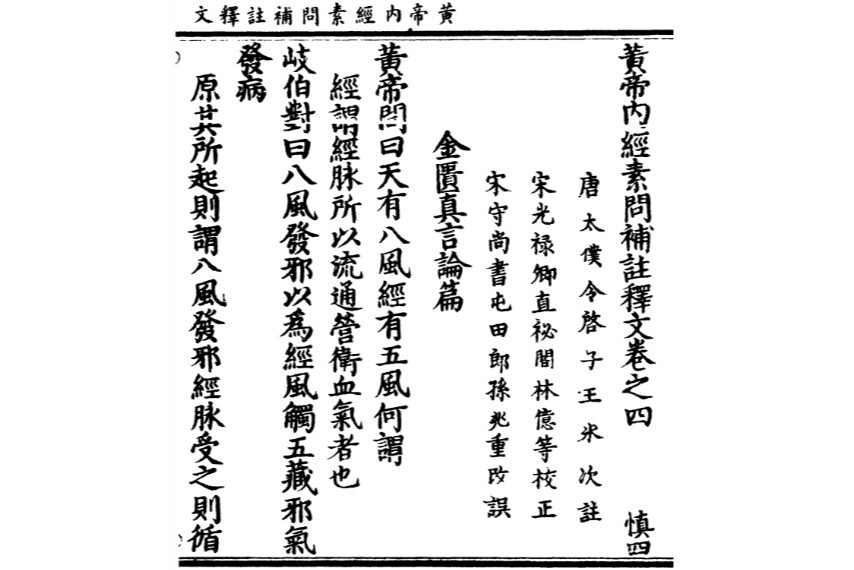 黃帝內經素問補註釋文
黃帝內經素問補註釋文卷之四 慎四
唐太僕令啓玄子王冰次註
宋光禄卿直祕閣林億等校正
宋守尚書屯田郎孫兆重改誤
金匱真言論篇
黃帝問曰天有八風經有五風何謂
經謂經脉所以流通營衛血氣者也
岐伯對曰八風發邪以爲經風觸五藏邪氣
發病
原其所起則謂八風發邪經脉受之則循